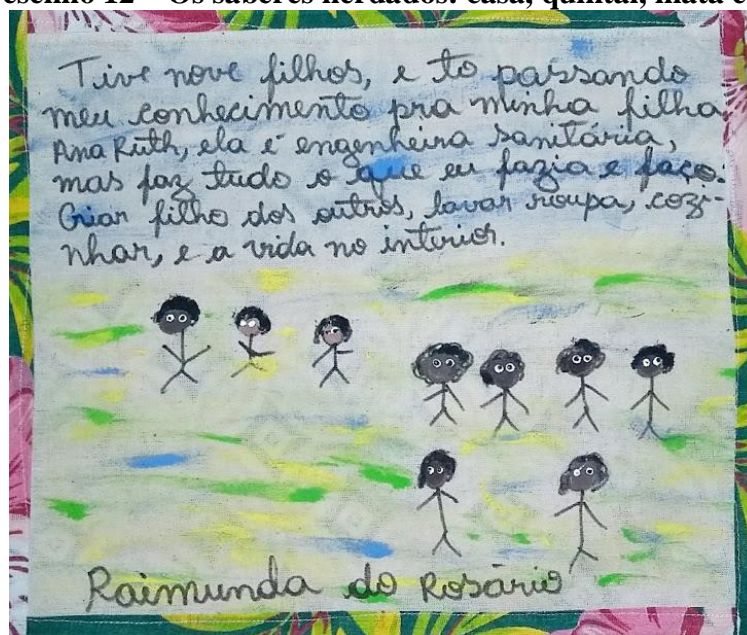 Os saberes herdados: casa, quintal, mata e
Tive nove filhos, e to passando
meu conhecimento pra minha filha
Ana Ruth, ela é engenheira sanitária,
mas faz tudo o que eu fazia e faço.
Criar filho dos outros, lavar roupa, cozi-
nhar, e a vida no interior.
Raimunda do Rosário